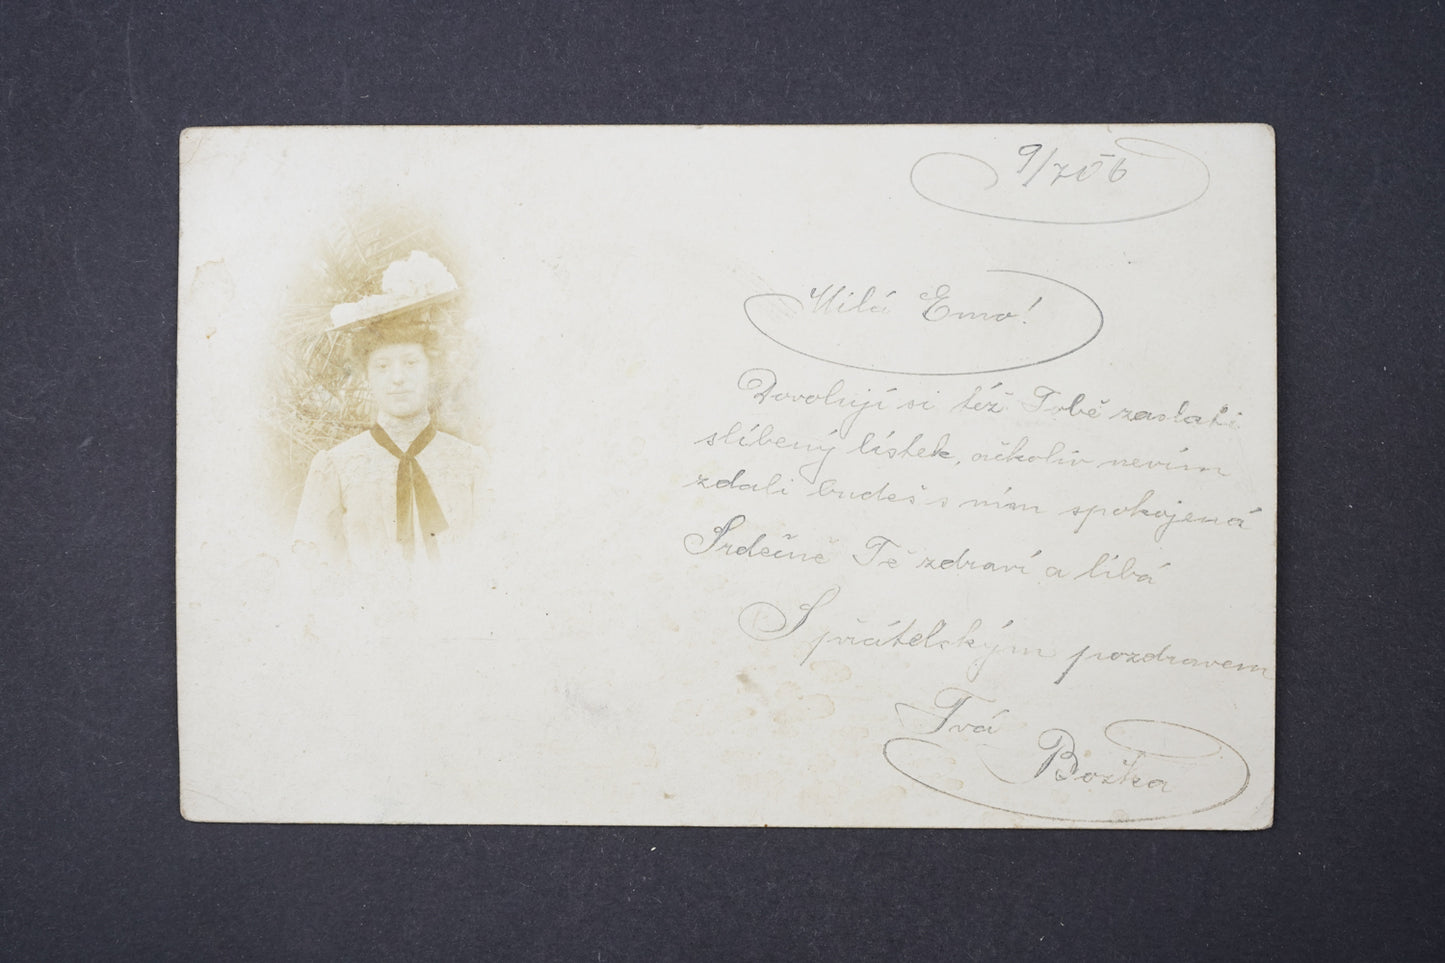 9/7 06
Milá Emo!
Dovoluji si též Tobě zaslati
slíbený lístek, ačkoliv nevím
zdali budeš s ním spokojená
Srdečně Tě zdraví a líbá
S přátelským pozdravem
Tvá
Božka